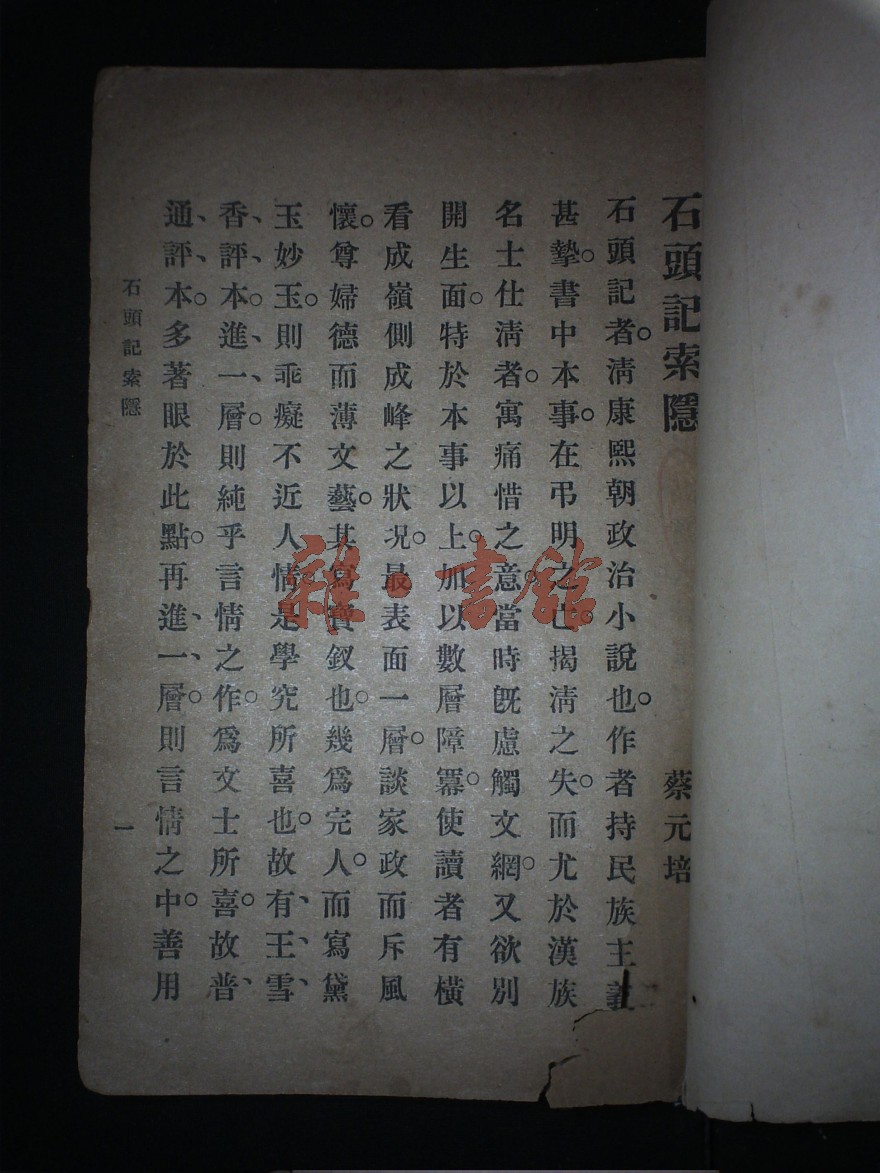 石頭記索隱
蔡元培
石頭記者。清康熙朝政治小說也。作者持民族主義
甚摯。書中本事。在弔明之亡。揭清之失。而尤於漢族
名士仕清者。寓痛惜之意。當時旣慮觸文網。又欲別
開生面。特於本事以上。加以數層障冪。使讀者有橫
看成嶺側成峰之狀况。最表面一層。談家政而斥風
懷。尊婦德而薄文藝。其寫寶釵也。幾爲完人。而寫黛
玉妙玉。則乖癡不近人情。是學究所喜也。故有、王、雪、
香、評、本、進一、層、。則純乎言情之作。爲文士所喜。故普、
通、評、本。多著眼於此點。再進、一、層。則言情之中。善用
石頭記索隱
一
雜·書館